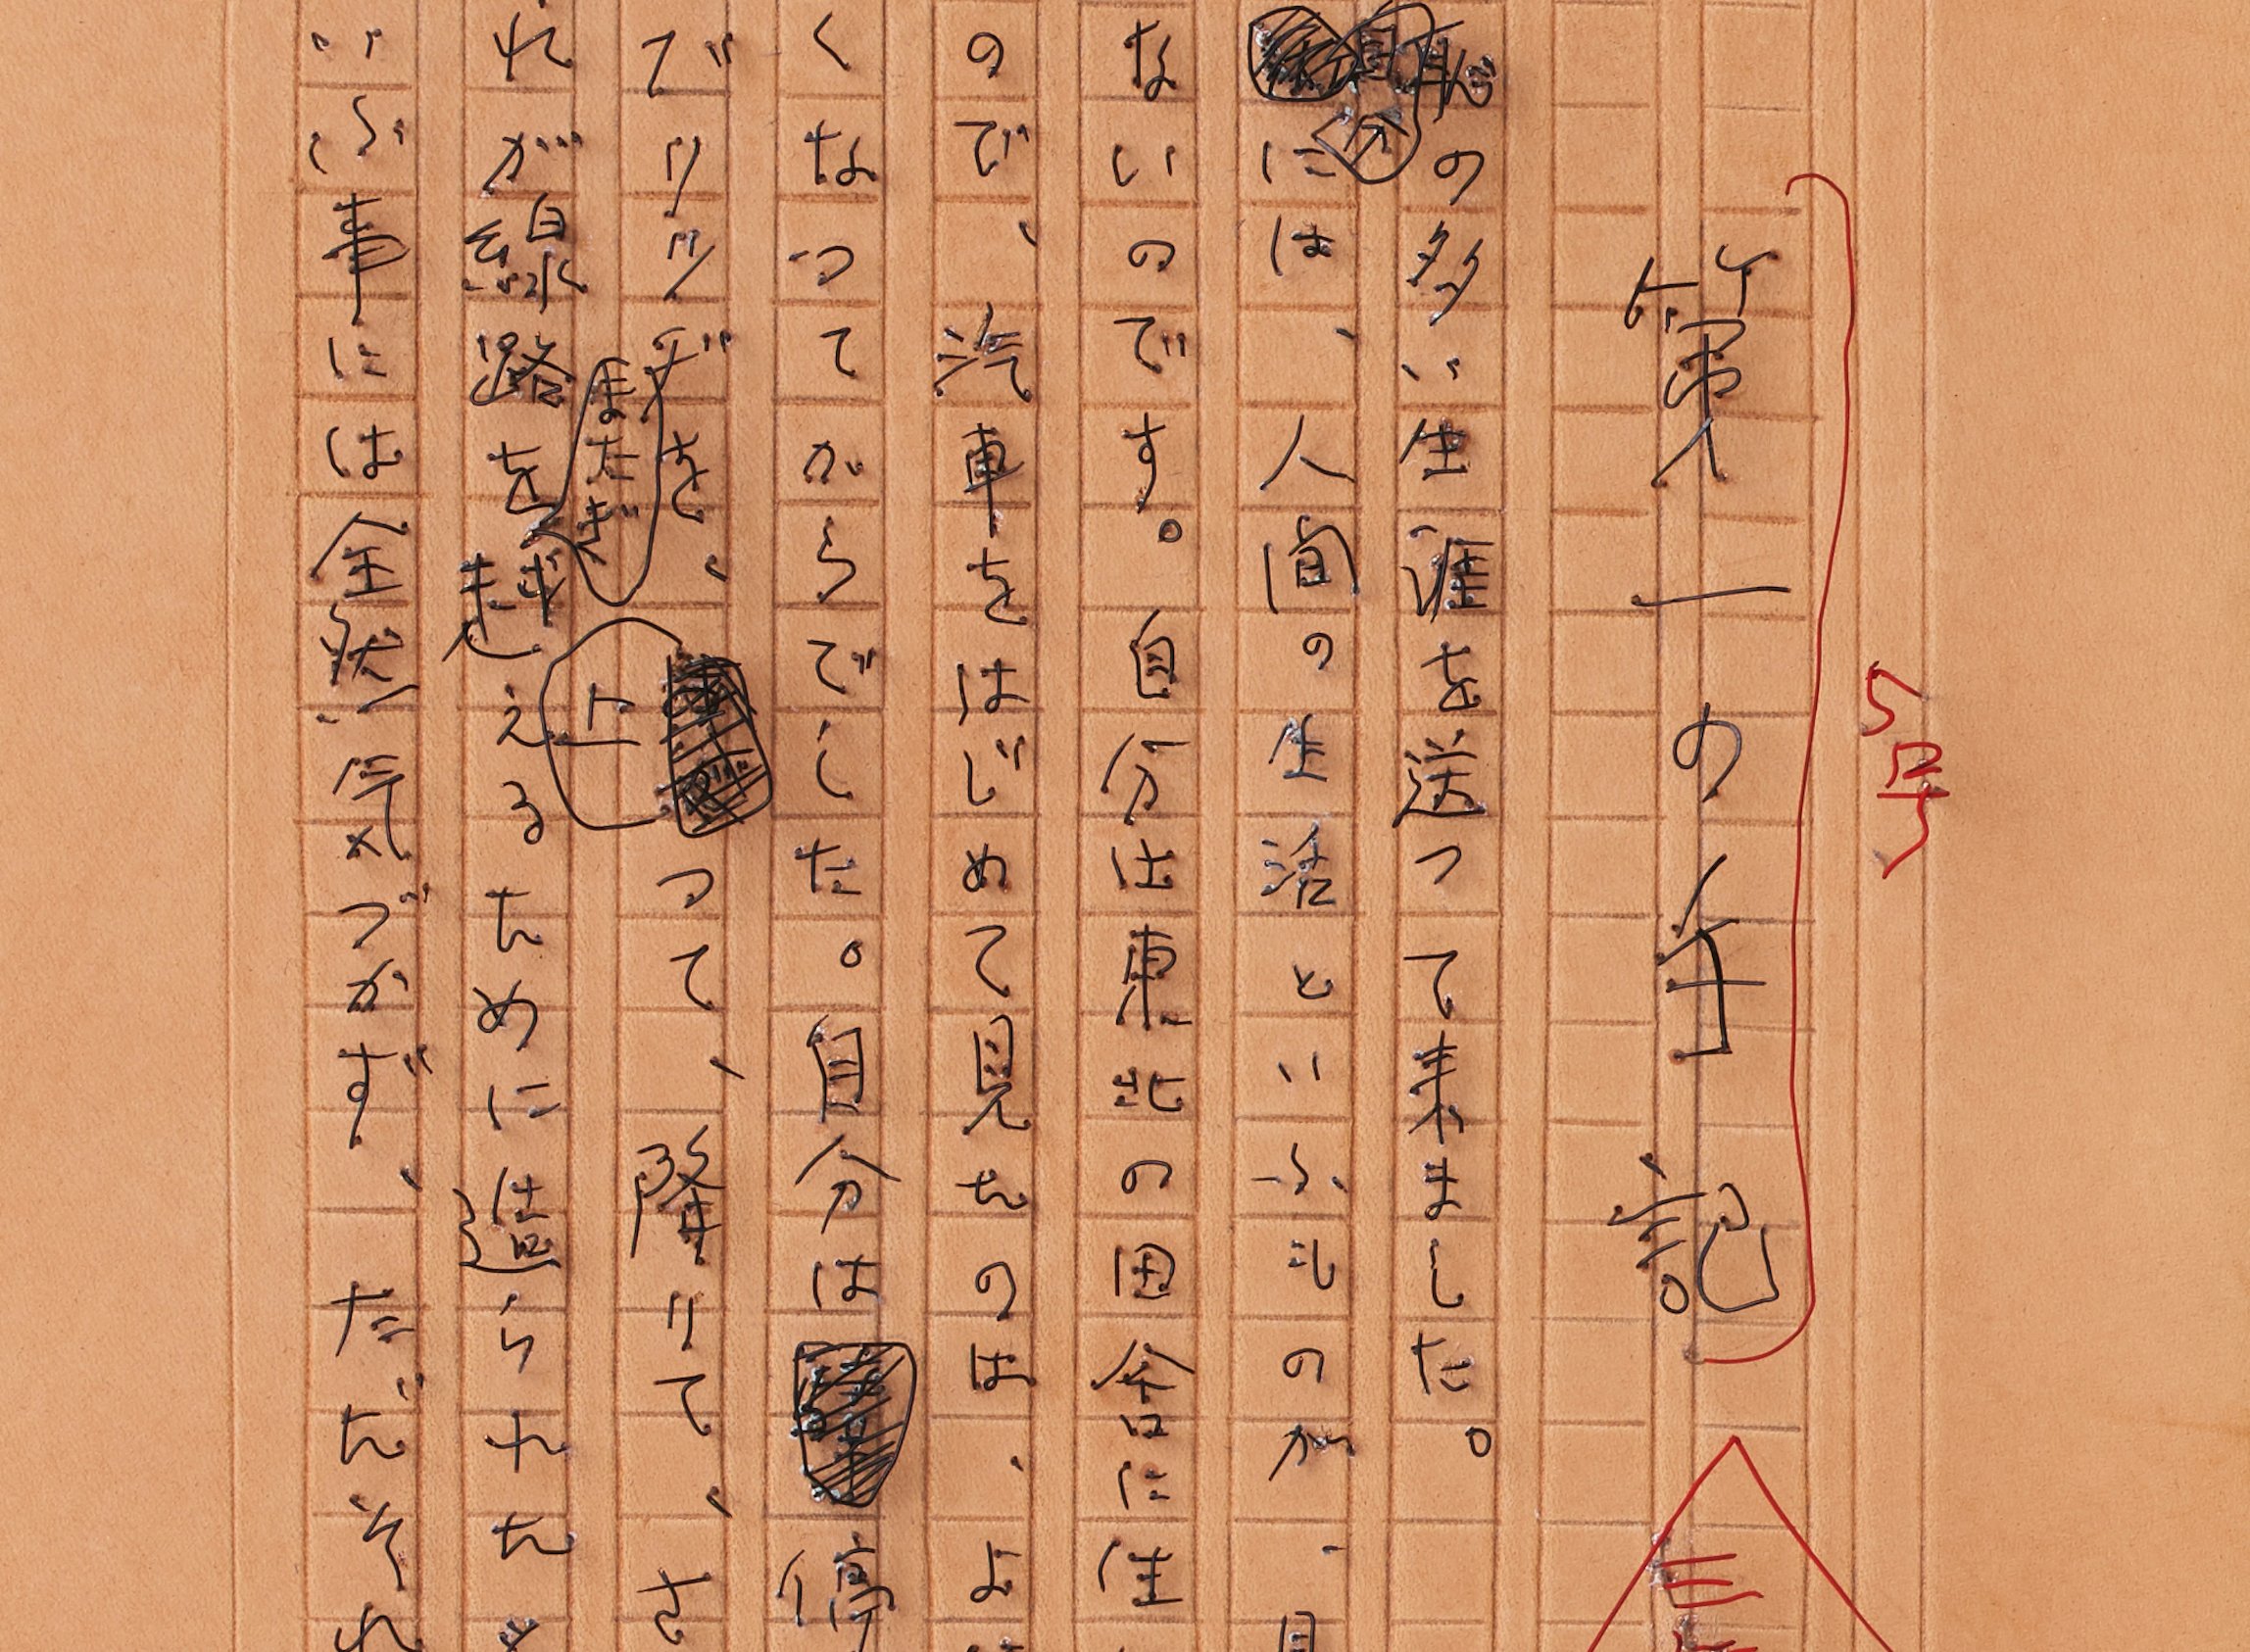 5号
第一の手記
恥の多い生涯を送つて来ました。
自分には、人間の生活といふものが、見
ないのです。自分は東北の田舎に生
ので、汽車をはじめて見たのは、よ
くなつてからでした。自分は停
ブリツヂを、上つて、降りて、そ
れが線路をまたぎ越えるために造られた
いふ事には全然気づかず、ただそれ